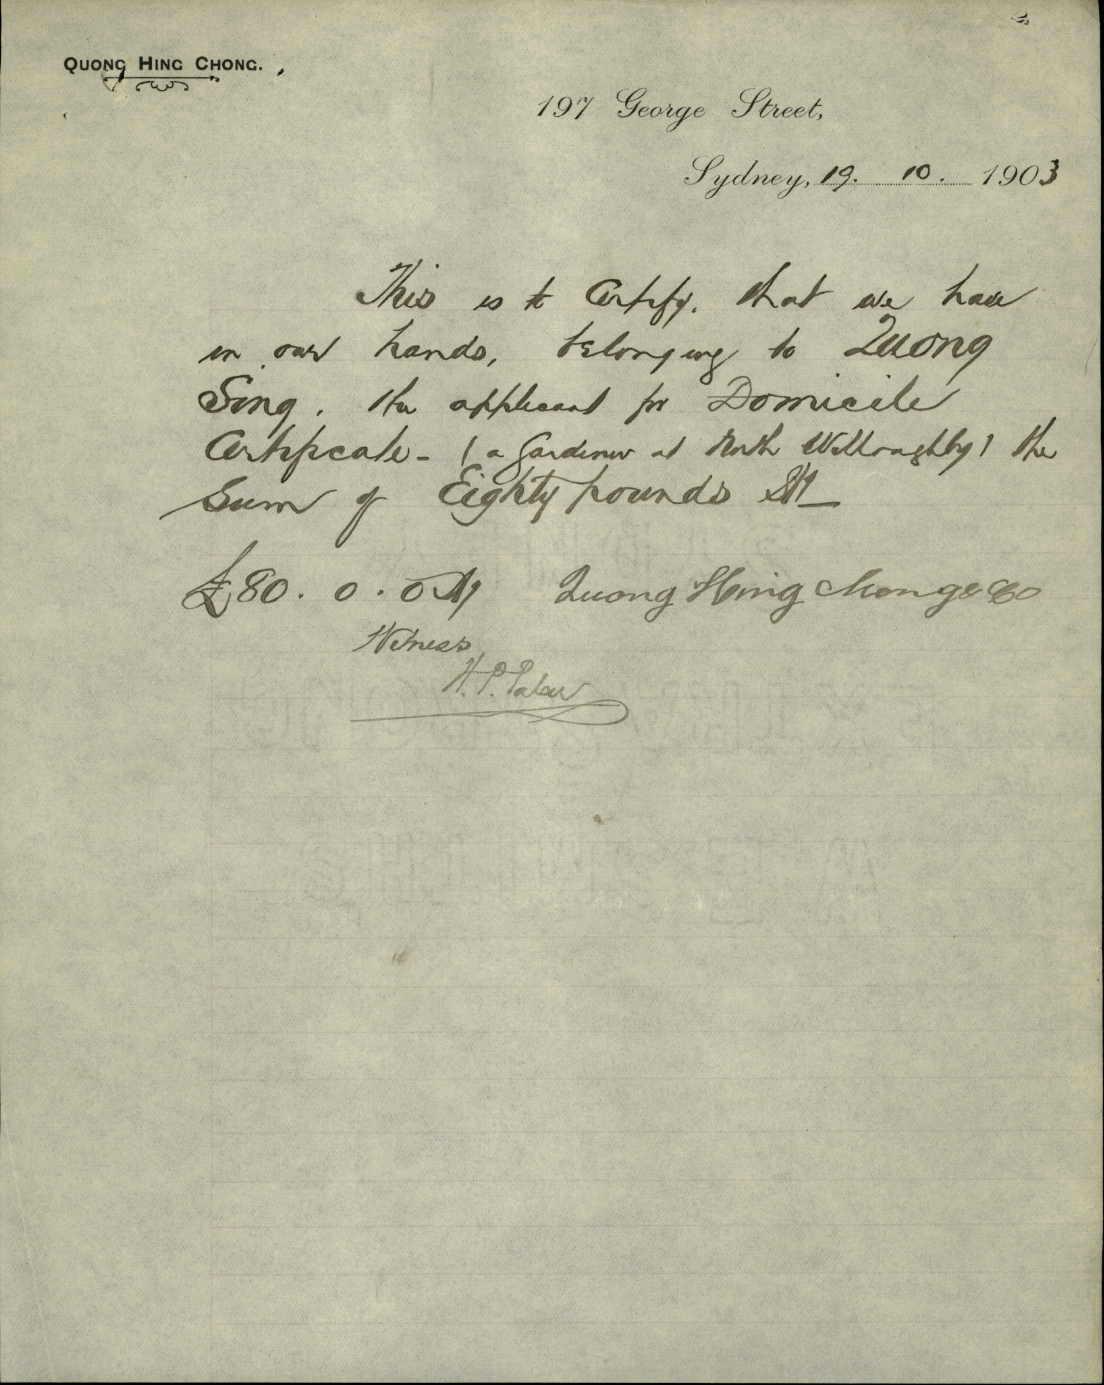 QUONG HING CHONG.
197 George Street,
Sydney, 19. 10. 1903
This is to Certify, that we have
in our hands, belonging to Quong
Sing. the applicant for Domicile
Certificate - (a Gardener at North Willoughby) the
Sum of Eighty pounds Stg
£80. 0. 0 Stg Quong Hing Chong & Co
Witness